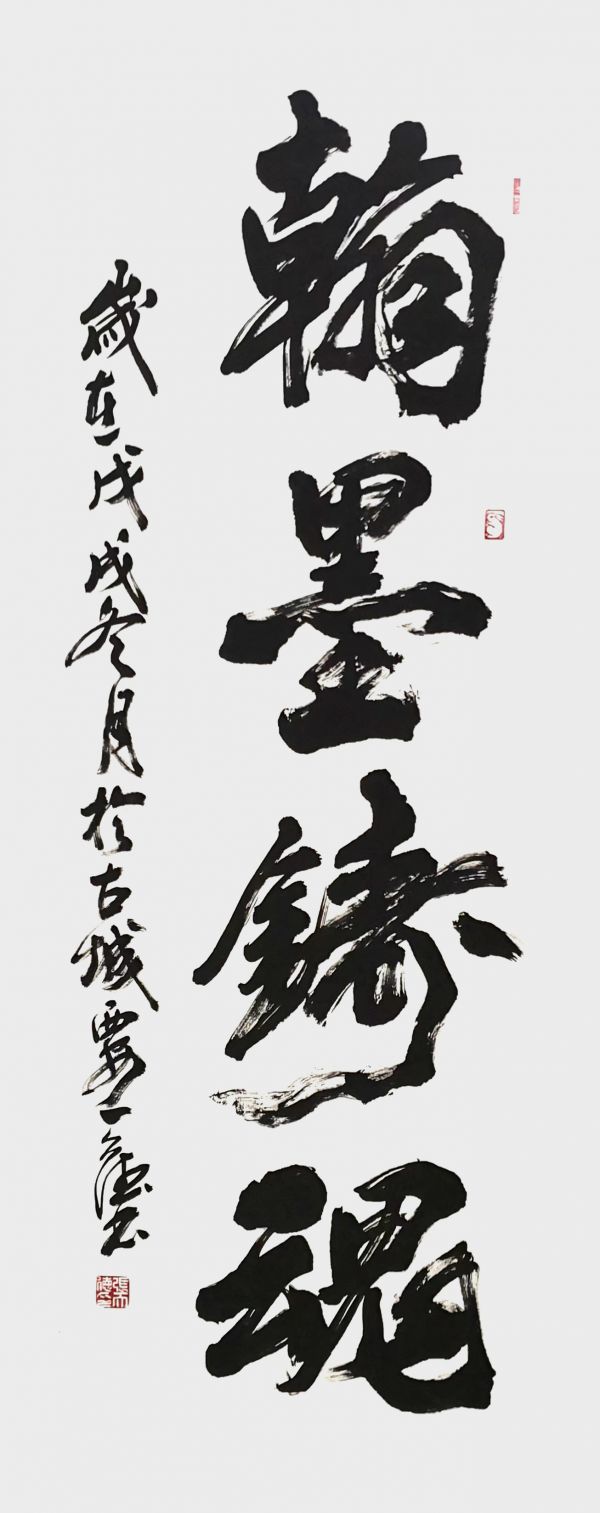 翰墨鑄魂
歲在戊戌冬月於古城